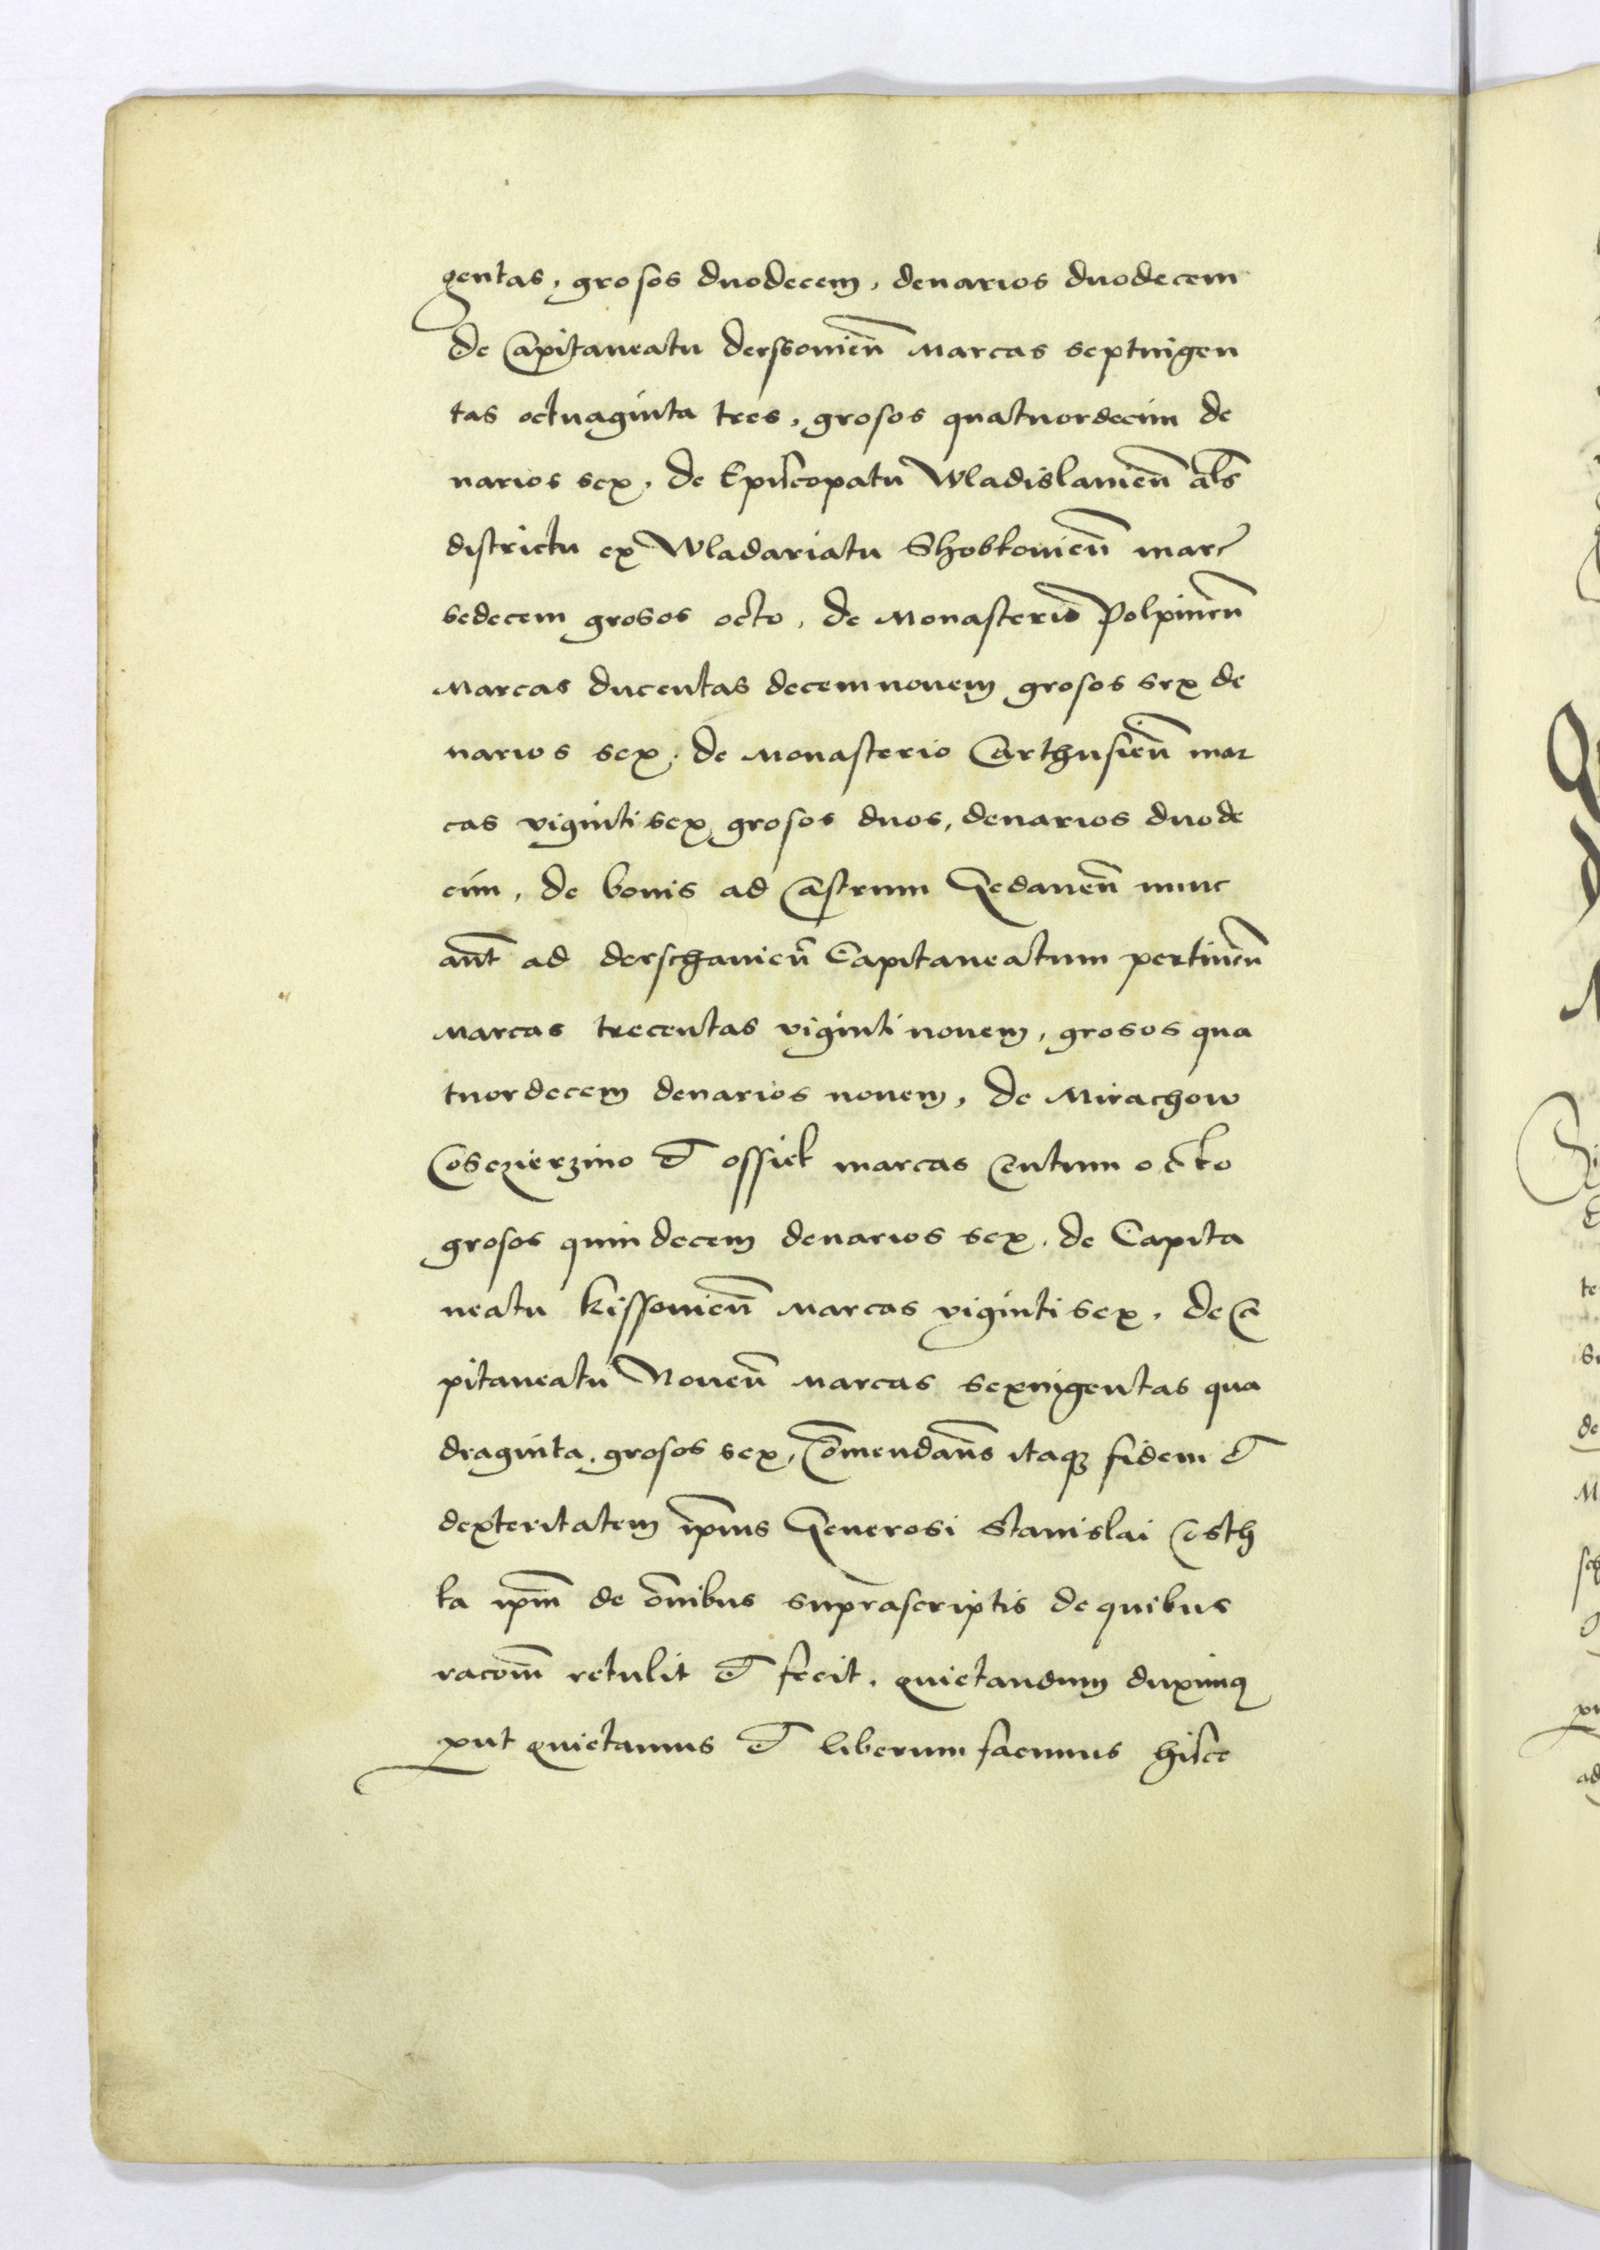 gentas, grosos duodecem, denarios duodecem
de Capitaneatu derssouien̄ Marcas septuigen
tas octuaginta tres, grosos quatuordecim de
narios sex, de Ep̄iscopatu Wladislauien̄ al̄s
districtu ex Wladariatu Shobkouien̄ marc̄
sedecem grosos octo, de Monasterio Polpinen̄
Marcas ducentas decemnouem grosos sex de
narios sex, de Monasterio Carthusien̄ mar
cas vigintisex grosos duos, denarios duode
cim, de bonis ad Castrum Gedanen̄ nunc
aūt ad derschauien̄ Capitaneatum pertinen̄
Marcas trecentas viginti nouem, grosos qua
tuordecem denarios nouem, de Mirachow
Cosczierzino et ossiek marcas Centum octo
grosos quindecem denarios sex, de Capita
neatu kissouien̄ Marcas vigintisex, de Ca
pitaneatu Nouen̄ Marcas sexuigentas qua
draginta, grosos sex, Com̄endan̄s itaqꝫ fidem et
dexteritatem ip̄ius Generosi Stanislai Costh
ka ip̄m de om̄ibus suprascriptis de quibus
racom̄ retulit et fecit, quietandum duximꝰ
ꝓut quietamus et liberum facimus hisce